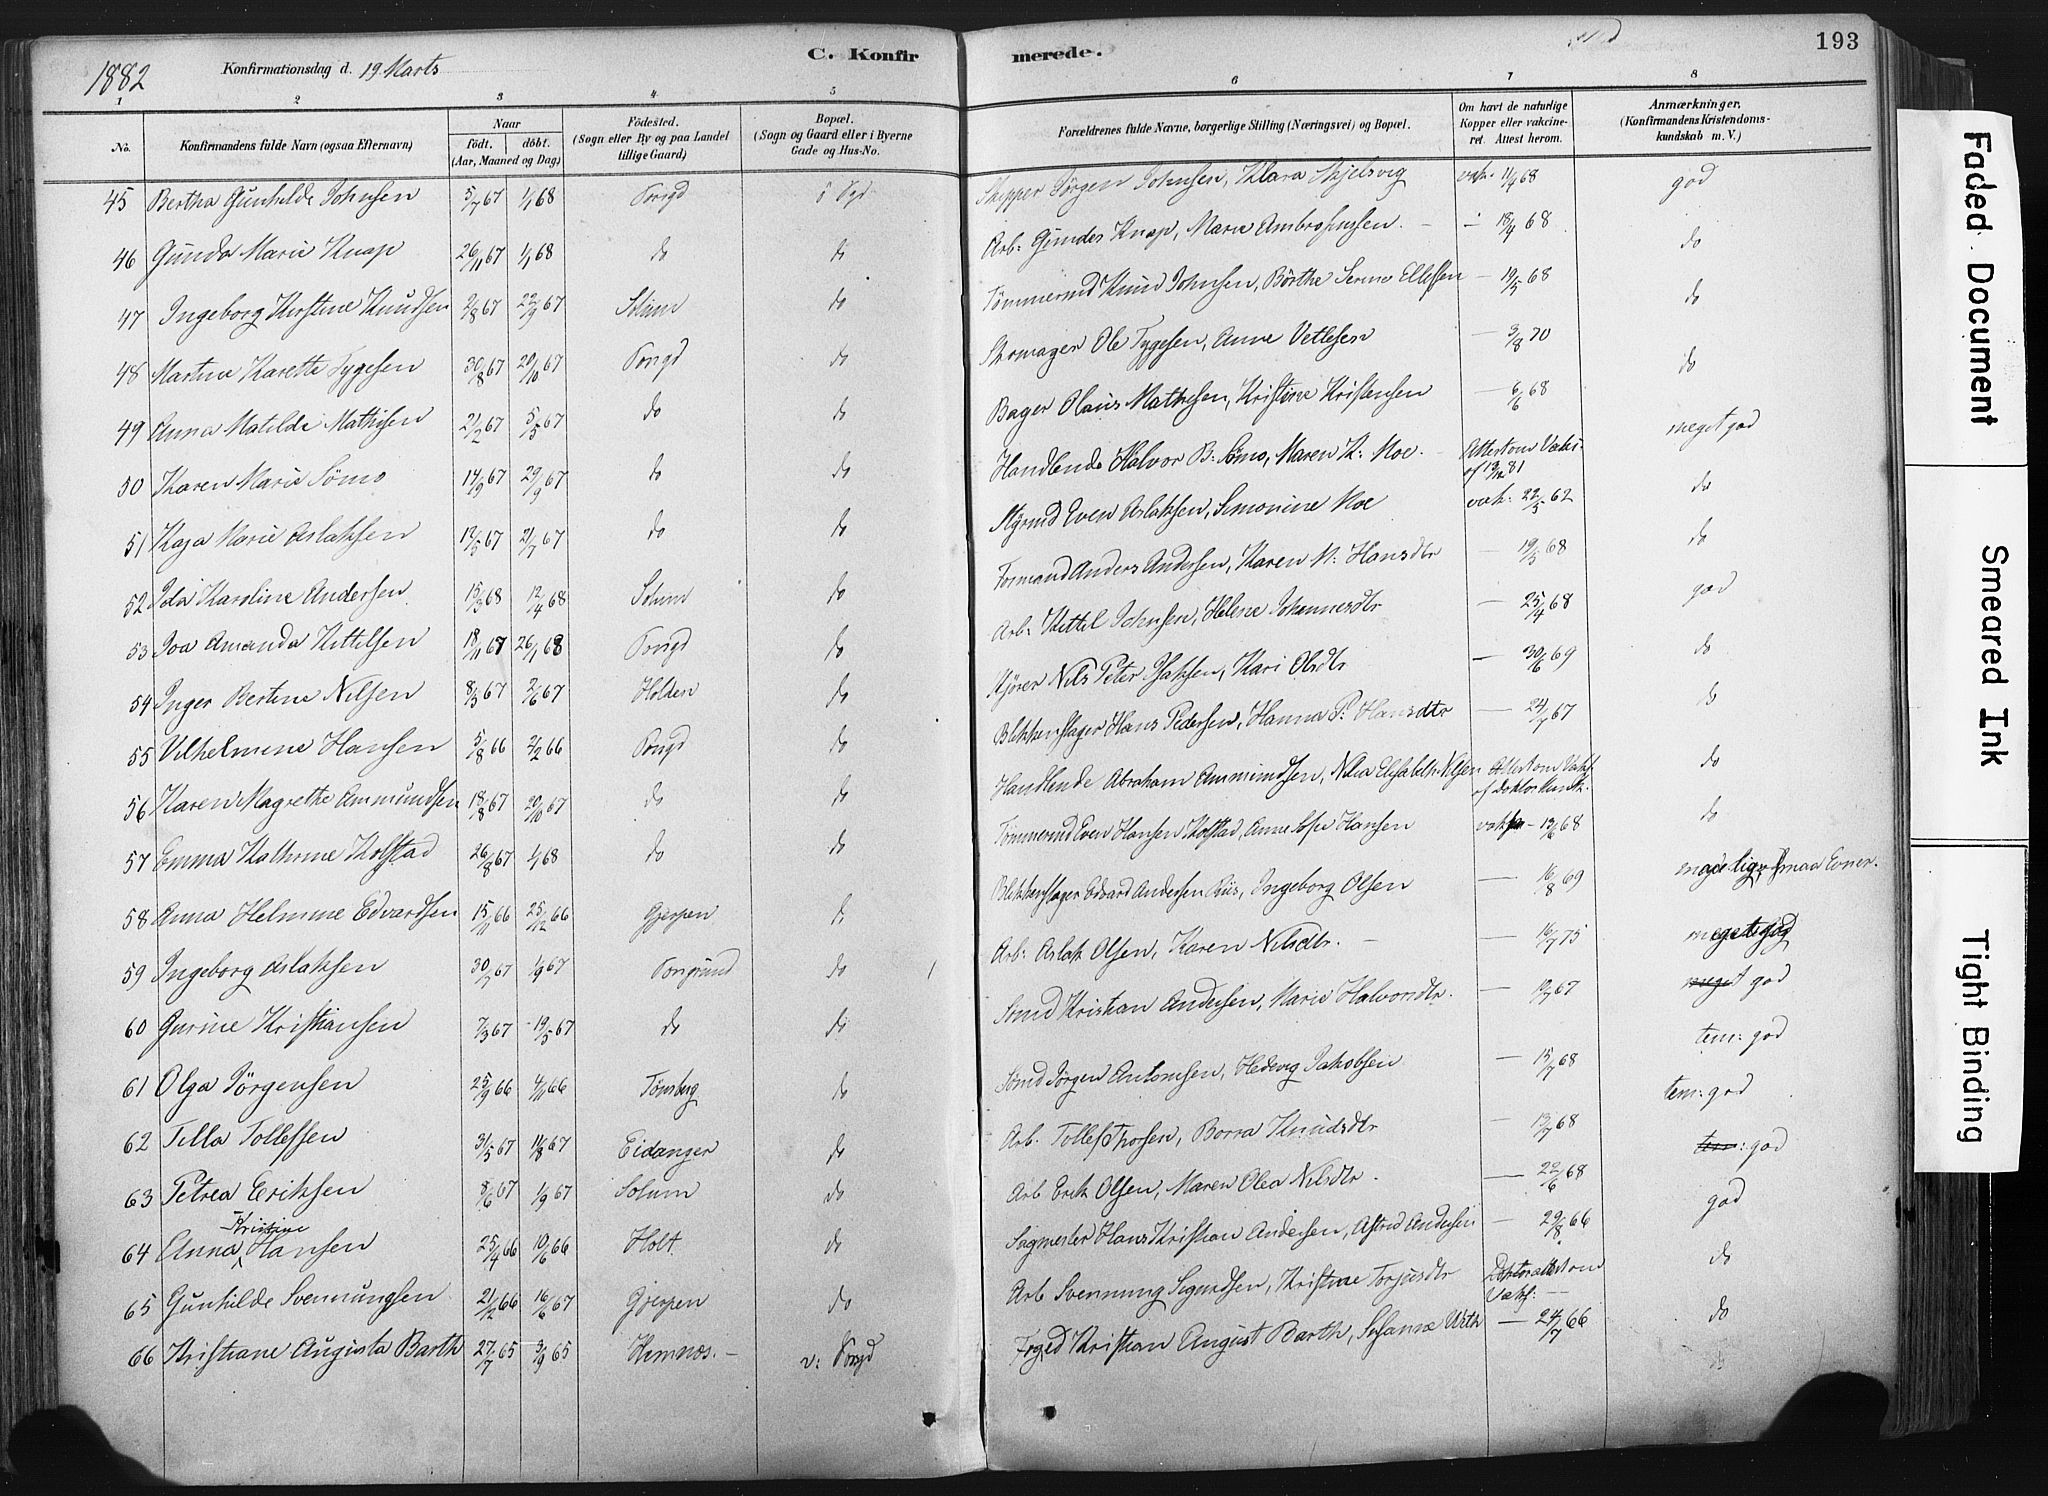 1882 Konfirmationsdag d. 19 Marts C. Konfirmerede. 193
1 2 3 4 5 6 7 8
No. Konfirmandens fulde Navn (ogsaa Efternavn) Naar födt. döbt. (Aar, Maaned og Dag) Födested. (Sogn eller By og paa Landet tillige Gaard) Bopæl. (Sogn og Gaard eller i Byerne Gade og Hus-No. Forældrenes fulde Navne, borgerlige Stilling (Næringsvei) og Bopæl. Om havt de naturlige Kopper eller vakcineret. Attest herom. Anmærkninger, (Konfirmandens Kristendomskundskab m. V.)
45 Bertha Gunhilde Johnsen 5/7 67 1/1 68 Porsgd Skipper Jörgen Johnsen, Klara Skjelsvig vak. 11/4 68 god
46 Gunda Marie Knap 26/11 67 1/1 68 do do Arb: Gundes Knap, Marie Ambrosiussen. - 18/4 68 do
47 Ingeborg Kirstine Knudsen 2/8 67 22/9 67 Solum do Tömmermd Knud Johnsen, Börthe Serine Ellefsen - 19/5 68 do
48 Martine Karette Tygesen 30/8 67 20/10 67 Porsgd do Skomager Ole Tygesen, Anne Vetlesen - 3/8 70 do
49 Anna Matilde Mathisen 21/2 67 5/5 67 do do Bager Olaus Mathisen, Kristine Kristensen - 6/6 68 meget god
50 Karen Marie Sömo 14/9 67 29/9 67 do do Handlende Halvor B: Sömo, Maren K: Moe. Attest om Vaks: af 13/12 81 do
51 Kaja Marie Aslaksen 12/5 67 21/7 67 do do Styrmd Even Aslaksen, Simonine Moe vak: 22/5 62 do
52 Ida Karoline Andersen 15/3 68 12/4 68 Solum do Formand Anders Andersen, Karen M: Hansdtr - 19/5 68 god
53 Ida Amanda Kittilsen 18/11 67 26/1 68 Porsgd do Arb: Kettil Johnsen, Helene Johannesdtr - 25/4 68 do
54 Inger Bertine Nilsen 8/3 67 2/6 67 Holden do Kjörer Nils Peter Isaksen, Kari Olsdtr - 30/6 69 do
55 Vilhelmine Hansen 5/8 66 2/2 66 Porsgd do Blikkenslager Hans Pedersen, Hanna P: Hansdtr - 24/7 67 do
56 Karen Magrethe Ammundsen 18/8 67 20/10 67 do do Handlende Abraham Ammundsen, Nilia Elisabeth Nilsen Attest om Vaks af Doktor do
57 Emma Kathrine Kolstad 26/8 67 1/1 68 do do Tömmermd Even Hansen Kolstad, Anne Sofie Hansen - 13/6 68 maadelig, smaa Evner.
58 Anna Helmine Edvardsen 15/11 66 25/12 66 Gjerpen do Blikkenslager Edvard Andersen Riis, Ingeborg Olsen - 16/8 69 meget god
59 Ingeborg Aslaksen 30/7 67 1/9 67 Porsgrund do Arb: Aslak Olsen, Karen Nilsdtr. - 16/7 75 meget god
60 Gurine Kristiansen 7/3 67 19/5 67 do do Sömd Kristian Andersen, Marie Halvorsdtr. - 19/7 67 tem: god
61 Olga Jörgensen 25/9 66 4/11 66 Tönsberg do Sömd Jörgen Antonsen, Hedevig Jakobsen - 15/7 68 tem: god
62 Tilla Tollefsen 31/5 67 18/8 67 Eidanger do Arb. Tollef Thorsen, Borra Knudsdtr - 13/7 68 tem: god
63 Petrea Eriksen 8/6 67 1/9 67 Solum do Arb Erik Olsen, Maren Olea Nilsdtr. - 22/6 68 god
64 Anna Kristine Hansen 25/4 66 10/6 66 Holt do Sagmester Hans Kristian Andersen, Astrid Andersen - 29/8 66 do
65 Gunhilde Svennungsen 21/12 66 16/6 67 Gjerpen do Arb Svennung Sigurdsen, Kristine Torjusdtr Doktorattest om Vaks: do
66 Kristiane Augusta Barth 27/7 65 3/9 65 Hemnæs. v: Porsgd Foged Kristian August Barth, Susanna With - 24/7 66 do
Faded Document
Smeared Ink
Tight Binding